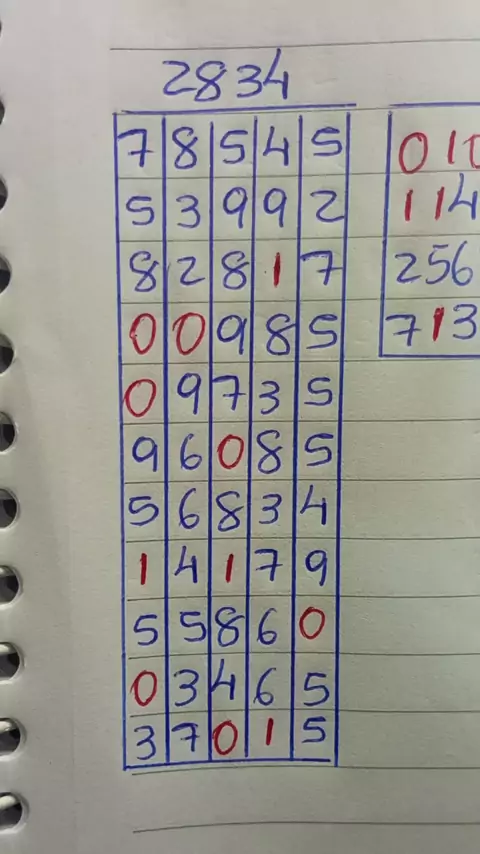 2834
7 8 5 4 5
5 3 9 9 2
8 2 8 1 7
0 0 9 8 5
0 9 7 3 5
9 6 0 8 5
5 6 8 3 4
1 4 1 7 9
5 5 8 6 0
0 3 4 6 5
3 7 0 1 5
0 1 0
1 1 4
256
713